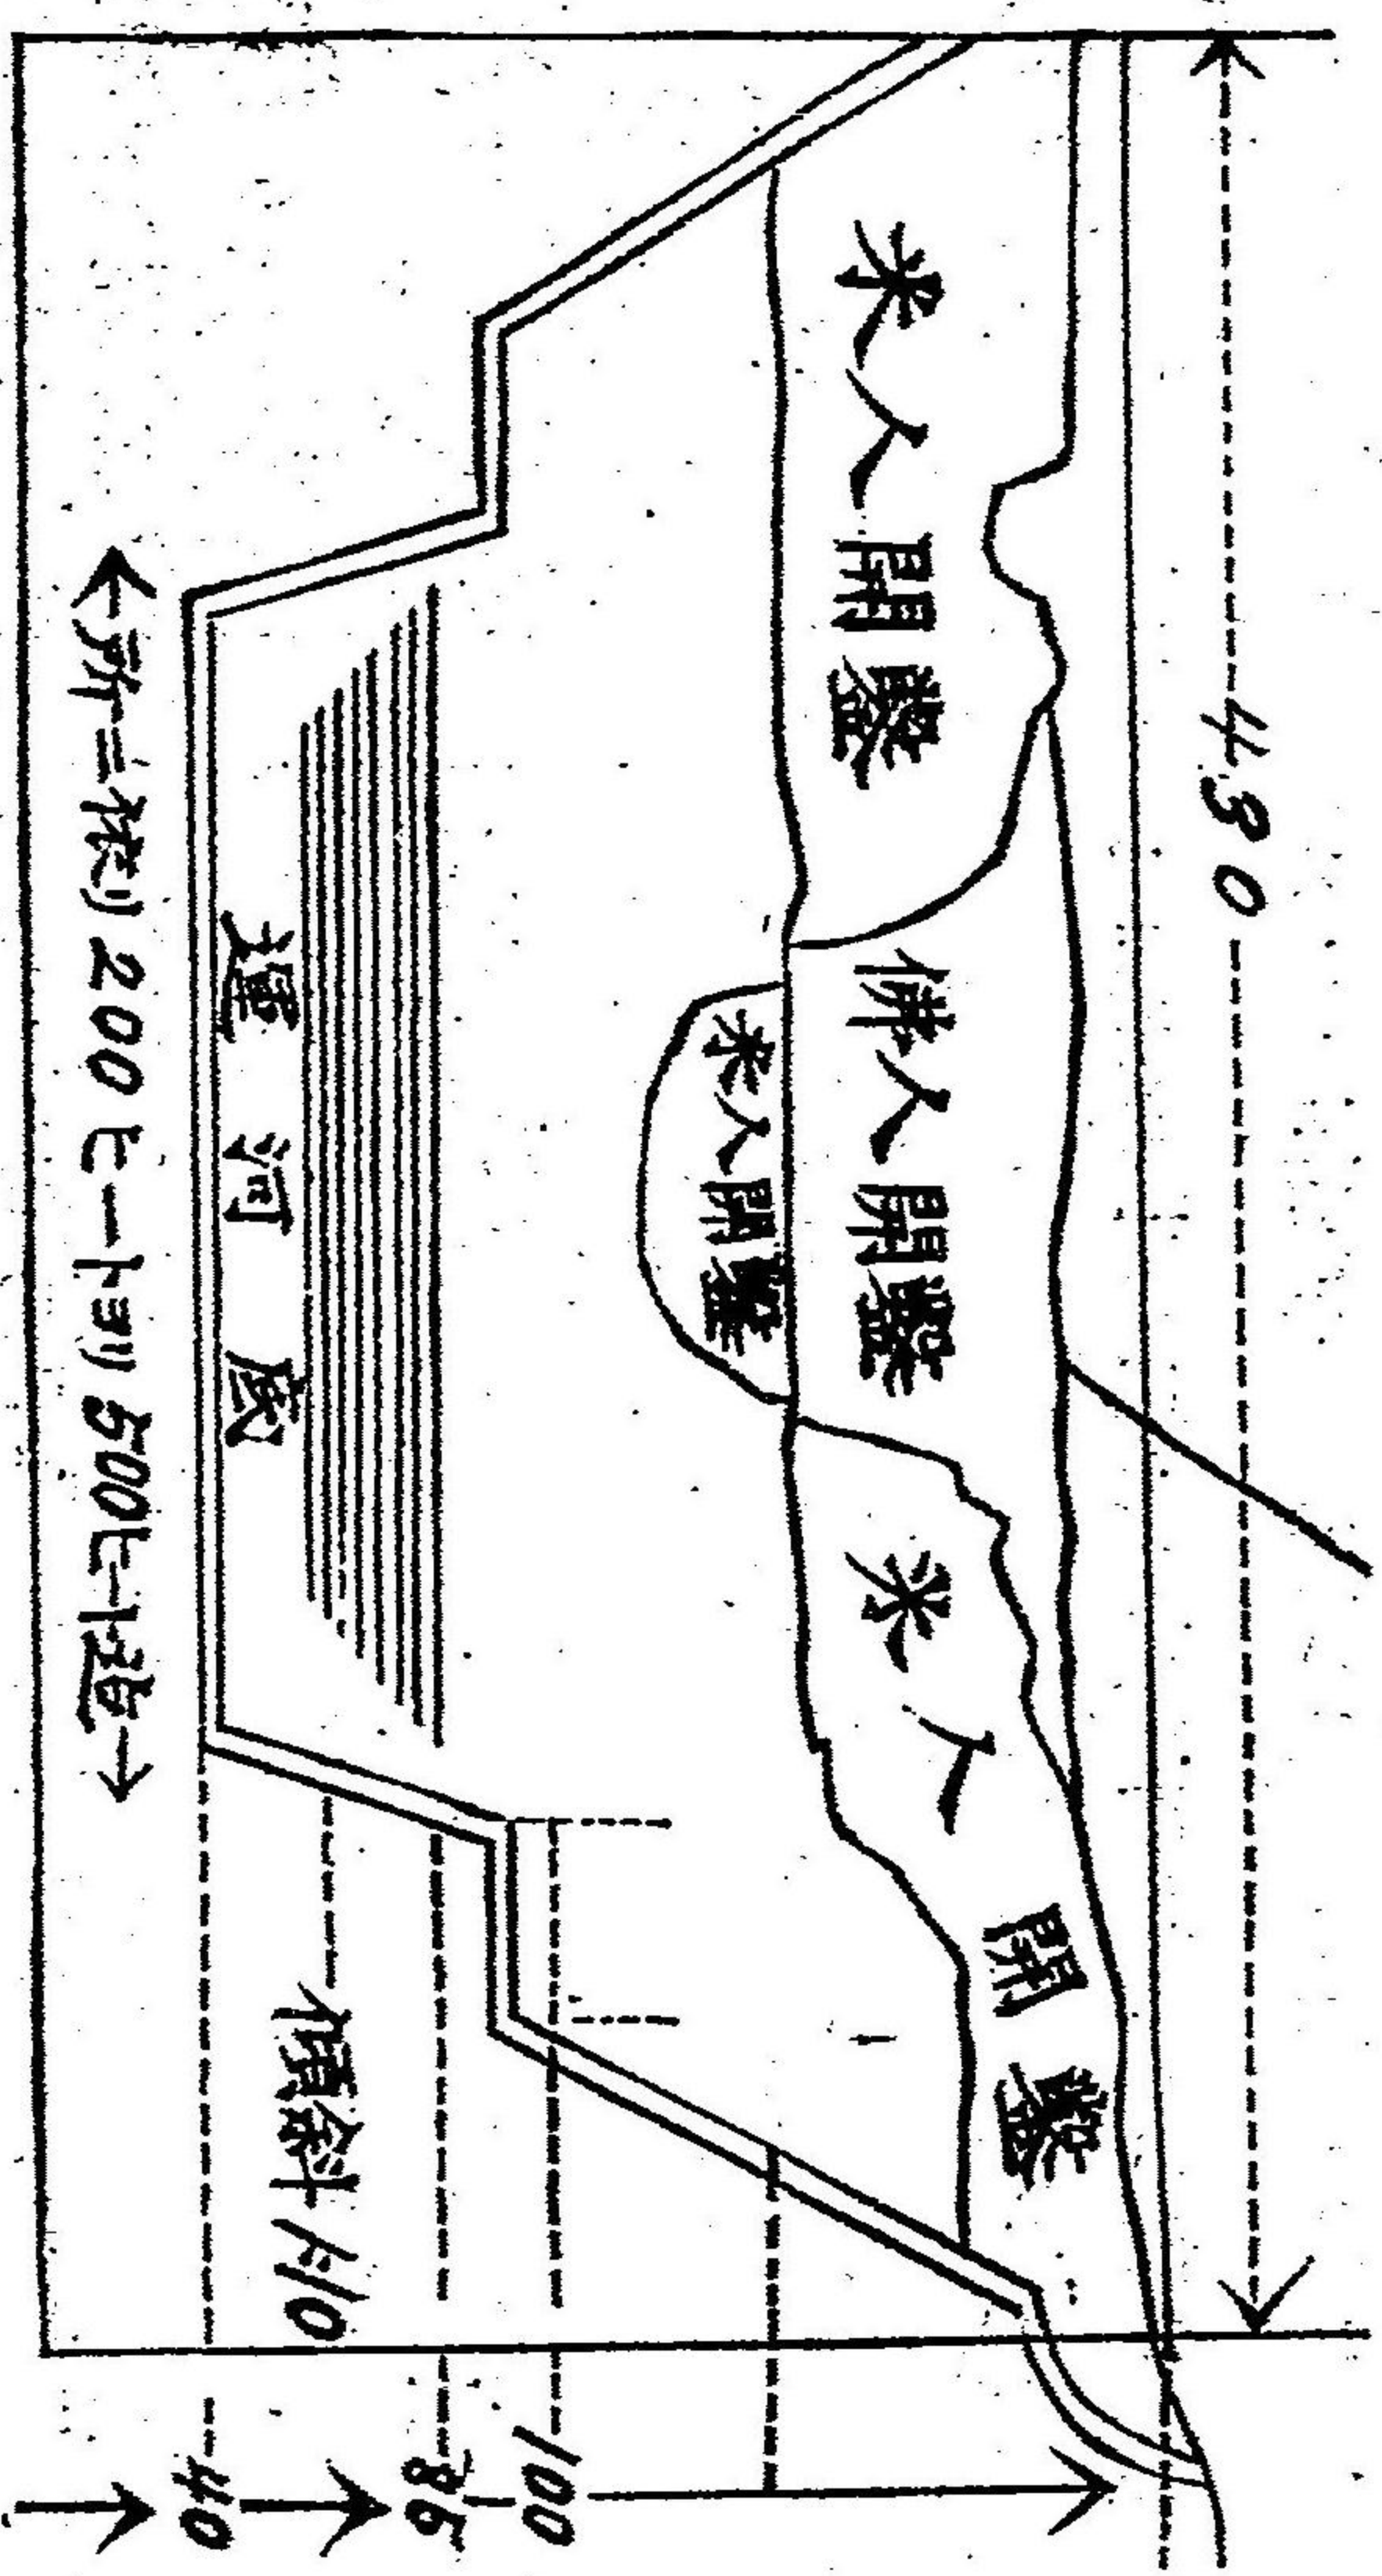 430
米人開鑿
佛人開鑿
米人開鑿
米人開鑿
運河底
傾斜1/10
←所ニ依リ200ヒートヨリ500ヒート迄→
100
85
40